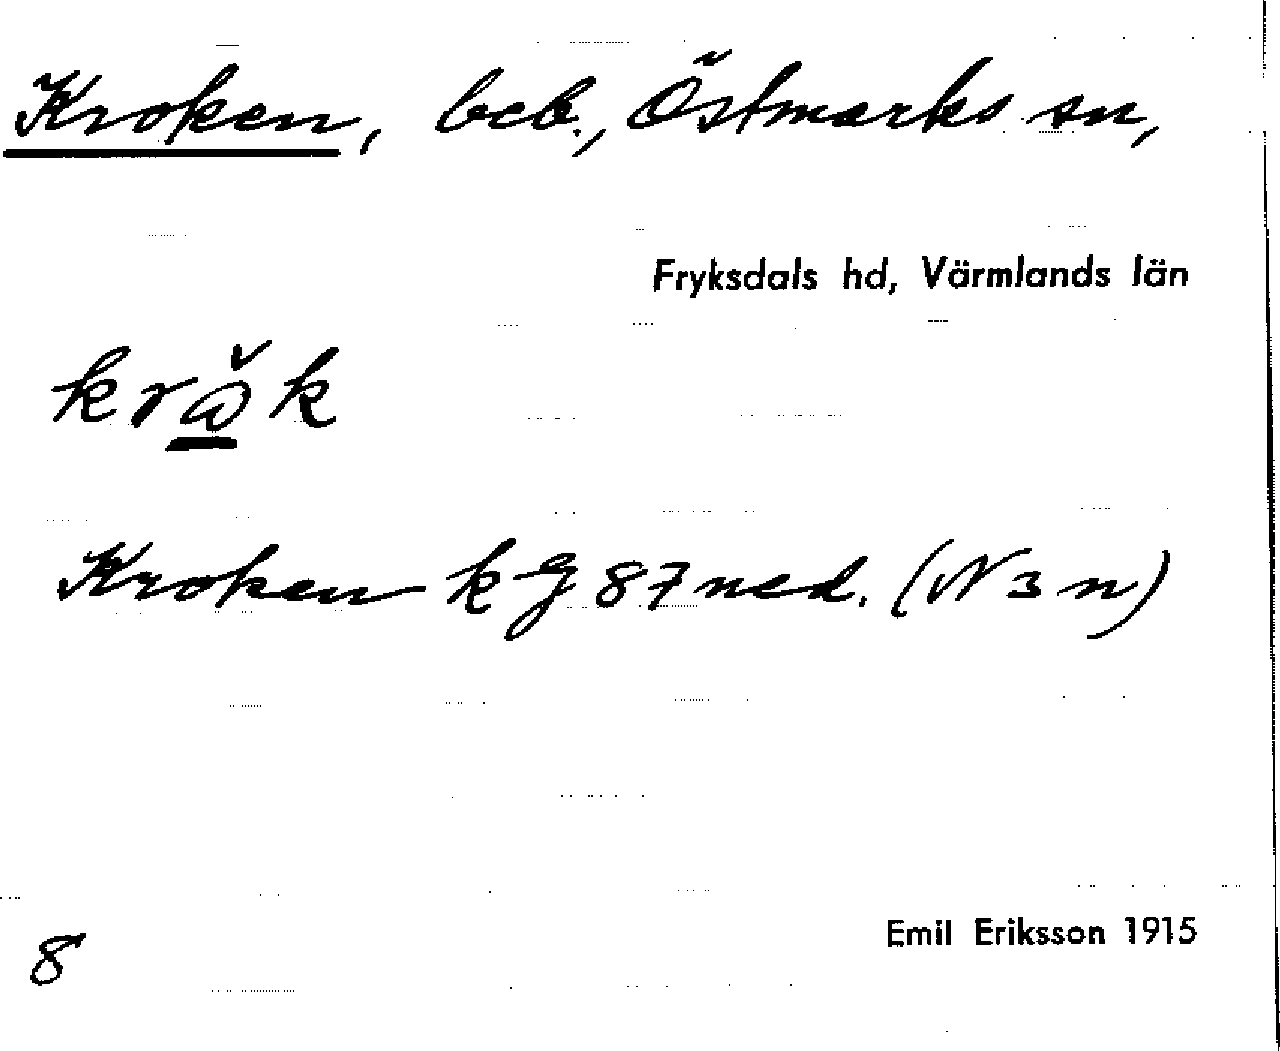 Kroken, beb., Östmarks sn,
Fryksdals hd, Värmlands län
Kroken kg 87 ned. (N 3 n)
8
Emil Eriksson 1915